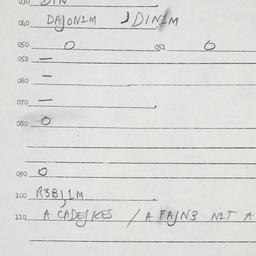 030 DIN
040 DAJON1M JDIN1M
050 0 051 0
052 —
060 —
070 —
080 0
090 0
100 R3BJ1M
110 A CADEJKES / A FAJN3 N1T A